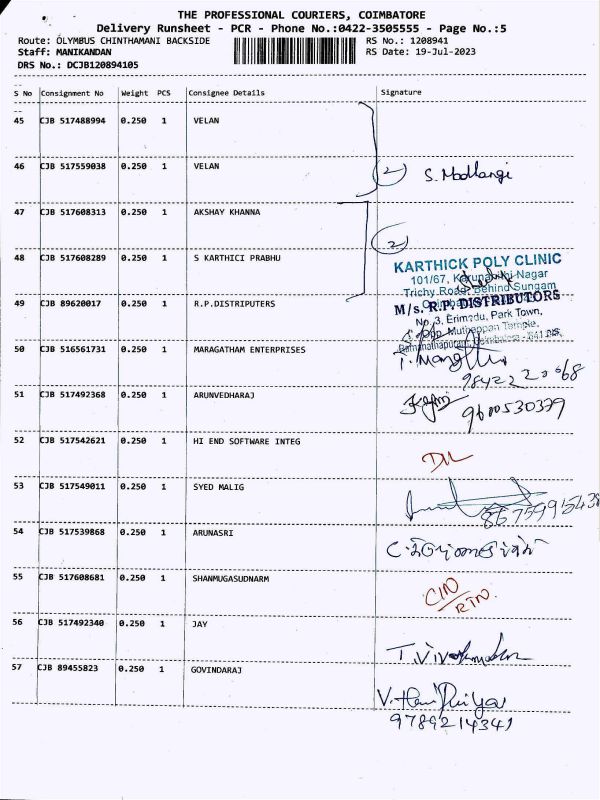 THE PROFESSIONAL COURIERS, COIMBATORE
Delivery Runsheet - PCR - Phone No.:0422-3505555 - Page No.:5
Route: OLYMBUS CHINTHAMANI BACKSIDE RS No.: 1208941
Staff: MANIKANDAN RS Date: 19-Jul-2023
DRS No.: DCJB120894105
S No Consignment No Weight PCS Consignee Details Signature
45 CJB 517488994 0.250 1 VELAN
46 CJB 517559038 0.250 1 VELAN 2
47 CJB 517608313 0.250 1 AKSHAY KHANNA
2
48 CJB 517608289 0.250 1 S KARTHICI PRABHU
KARTHICK POLY CLINIC
101/67, Karunanithi Nagar
Trichy Road, Behind Sungam
49 CJB 89620017 0.250 1 R.P.DISTRIPUTERS
M/s. R.P. DISTRIBUTORS
No.3, Erimedu, Park Town,
Opp. Muthappan Temple,
50 CJB 516561731 0.250 1 MARAGATHAM ENTERPRISES
51 CJB 517492368 0.250 1 ARUNVEDHARAJ
9600530379
52 CJB 517542621 0.250 1 HI END SOFTWARE INTEG
DL
53 CJB 517549011 0.250 1 SYED MALIG
54 CJB 517539868 0.250 1 ARUNASRI
55 CJB 517608681 0.250 1 SHANMUGASUDNARM
CIN
RTN
56 CJB 517492340 0.250 1 JAY
57 CJB 89455823 0.250 1 GOVINDARAJ
9789214341